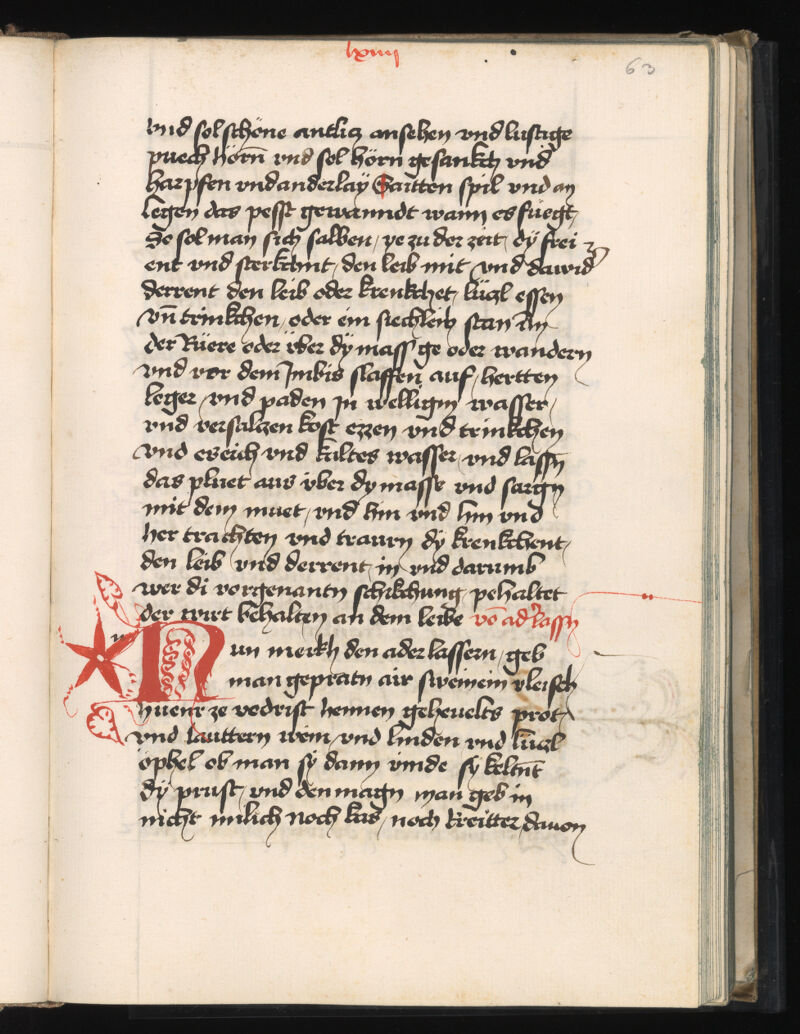 lxiiii
63
vnd sol schöne antlicz ansehen vnd lustige
puech hörn̄ vnd sol hörn gesankch vnd
harpfen vnd anderlaÿ Saitten spil vnd an
legen das pesst gewanndt wann es fuegt
So sol man sich salben / ye zu der zeit / dÿ frei
ent vnd sterkchnt / den leib mit vnd dawid̾
derrent den leib oder krenkchet / lüczl essen
vn̄ trinkchen / oder ein siechleich stan An
der Rüere oder über dÿ mass ge oder wandern
vnd vor dem Imbis slaffen auf / hertten
leger / vnd paden in welligm wasser /
vnd versalczen kost ezzen vnd trinkchen
vnd essich vnd kaltes wasser / vnd lassn̄
das pluet aus über dy masse vnd sargn
mit dem muet / vnd hin vnd hin vnd
her trachten vnd traurn dÿ krenkchent /
den leib vnd derrent in vnd darumb
wer di vorgenantn schikchung pehaltet
der wirt behalten an dem leibe vō ad̾lassn
Nun merkh den aderlassern / geb
man gepratn air sweinein vleisch
huenr ze vodrist hennen geheuelts prot /
vnd lauttern wein / vnd linden vnd lüczl
öphel ob man sÿ dann vinde sy keltn̄t
dÿ prust / vnd den magn man geb in
nicht milich noch käs / noch kreitter dauon